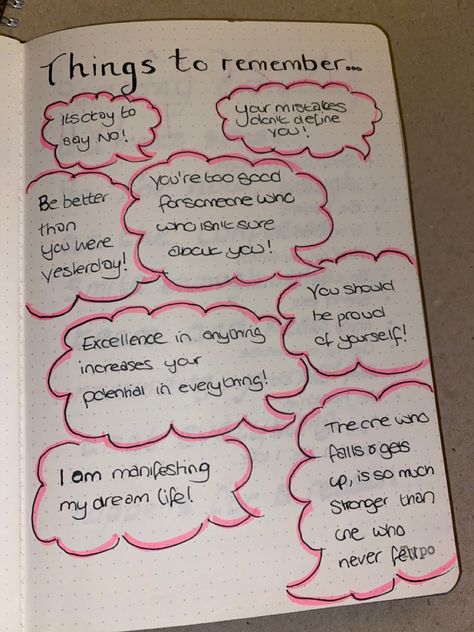 Things to remember...
It's okay to
say NO!
Your mistakes
don't define
you!
Be better
than
you were
yesterday!
You're too good
for someone who
who isn't sure
about you!
You should
be proud
of yourself!
Excellence in anything
increases your
potential in everything!
I am manifesting
my dream life!
The one who
falls & gets
up, is so much
stronger than
one who
never fell.
typo